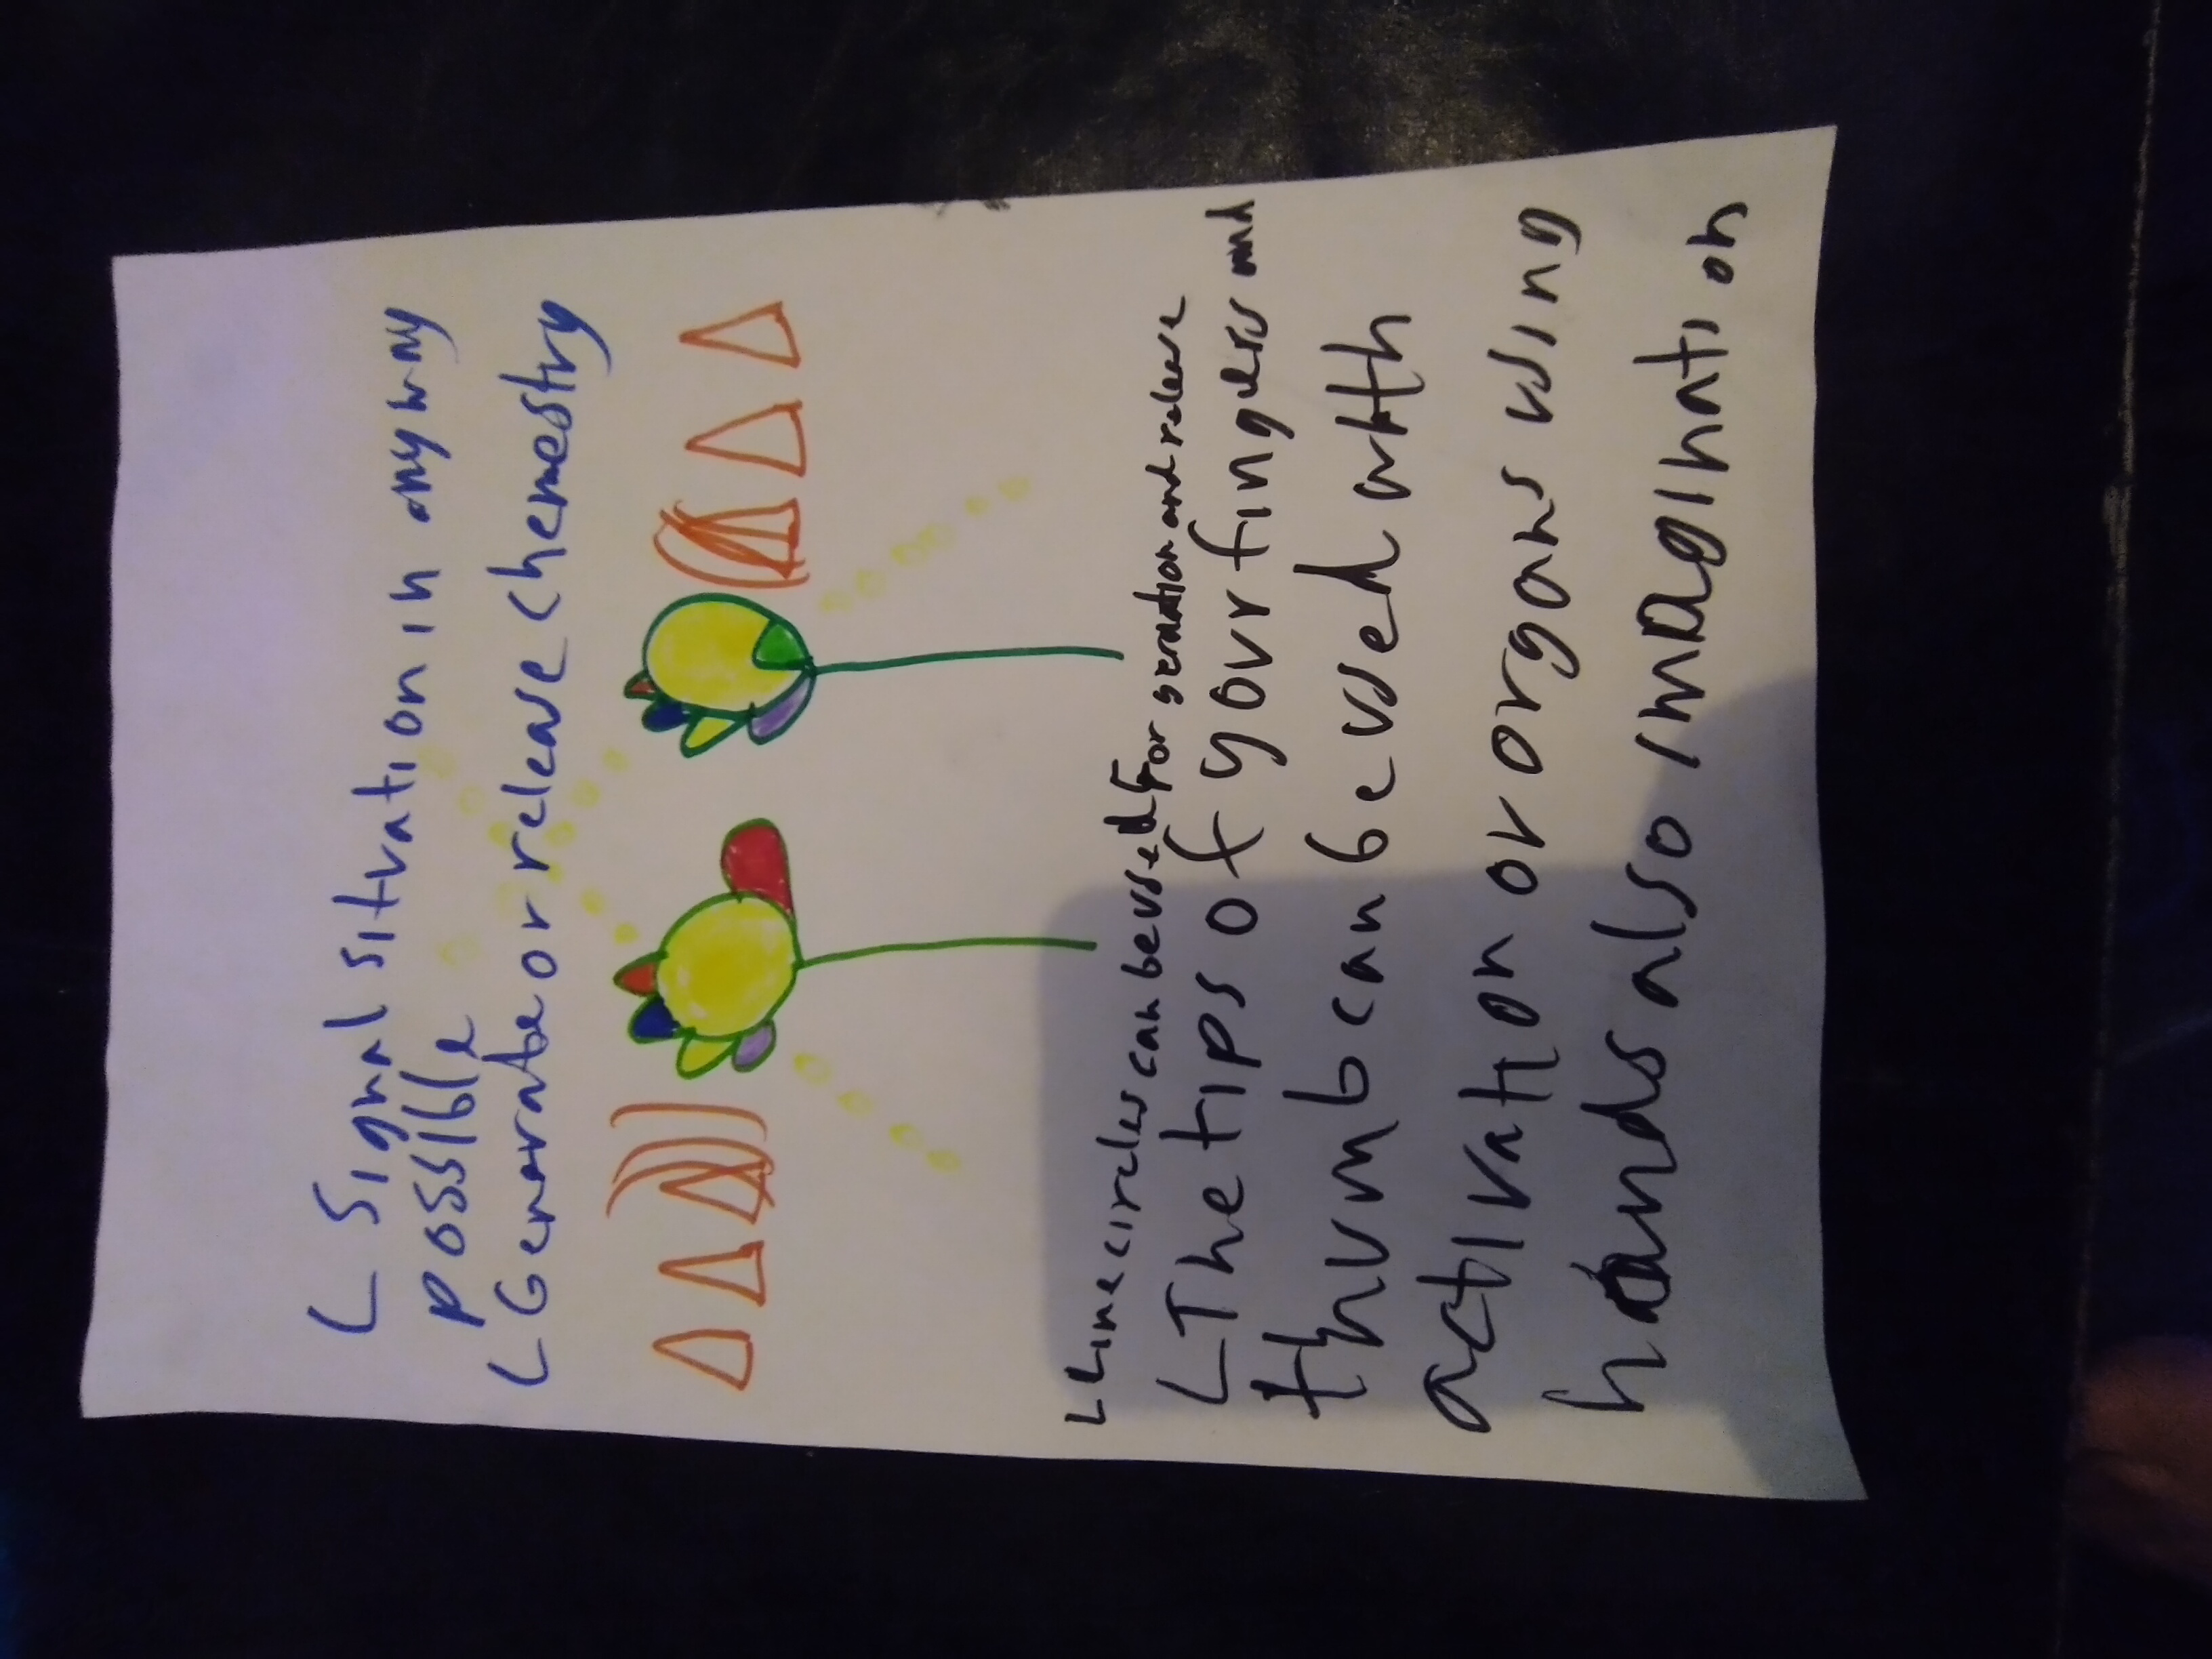 L Signal situation in anyway
possible
L Generate or release chemestry
L Lime circles can be used for and release
L The tips of your fingers and
thumb can be used with
activation or organs using
hands also imagination